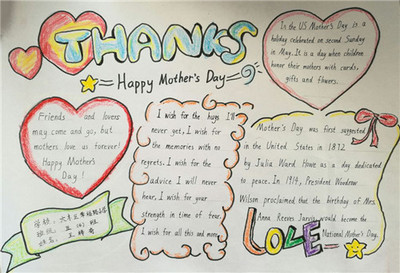 THANKS
Happy Mother's Day
In the US Mother's Day is a
holiday celebrated on second Sunday
in May. It is a day when children
honor their mothers with cards,
gifts and flowers.
Friends and lovers
may come and go, but
mothers love us forever!
Happy Mother's
Day!
I wish for the hugs I'll
never get, I wish for
the memories with no
regrets. I wish for the
advice I will never
hear, I wish for your
strength in time of fear.
I wish for all this and more
Mother's Day was first suggested
in the United States in 1872
by Julia Ward Howe as a day dedicated
to peace. In 1914, President Woodrow
Wilson proclaimed that the birthday of Mrs.
Anna Reeves Jarvis would become the
National Mother's Day.
LOVE
学校:
班级: 五
姓名: 王